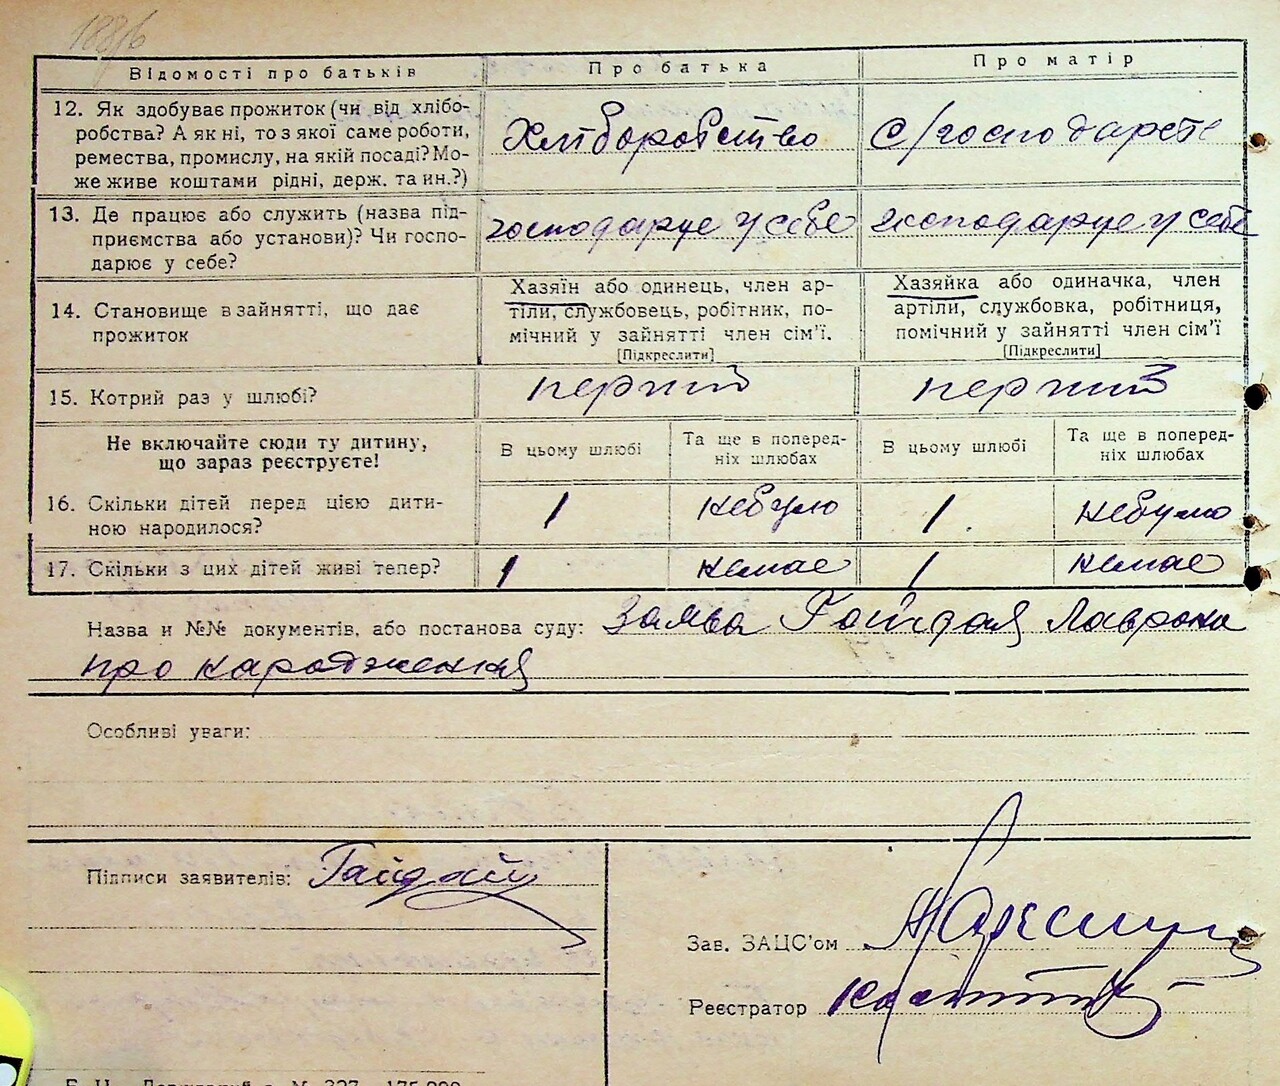 188/6
Відомості про батьків
Про батька
Про матір
12. Як здобуває прожиток (чи від хлібо-
робства? А як ні, то з якої саме роботи,
ремества, промислу, на якій посаді? Мо-
же живе коштами рідні, держ. та ин.?)
Хліборобство
С/господарств
13. Де працює або служить (назва під-
приємства або установи)? Чи госпо-
дарює у себе?
господарує у себе
господарує у себе
14. Становище в зайнятті, що дає
прожиток
Хазяїн або одинець, член ар-
тіли, службовець, робітник, по-
мічний у зайнятті член сім'ї.
[Підкреслити]
Хазяйка або одиначка, член
артіли, службовка, робітниця,
помічний у зайнятті член сім'ї
[Підкреслити]
15. Котрий раз у шлюбі?
перший
перший
Не включайте сюди ту дитину,
що зараз реєструєте!
В цьому шлюбі
Та ще в поперед-
ніх шлюбах
В цьому шлюбі
Та ще в поперед-
ніх шлюбах
16. Скільки дітей перед цією дити-
ною народилося?
1
небуло
1
небуло
17. Скільки з цих дітей живі тепер?
1
немає
1
немає
Назва и №№ документів, або постанова суду: Заява Гайдая Лаврона
про народження
Особливі уваги:
Підписи заявителів: Гайдай
Зав. ЗАЦС'ом
Реєстратор